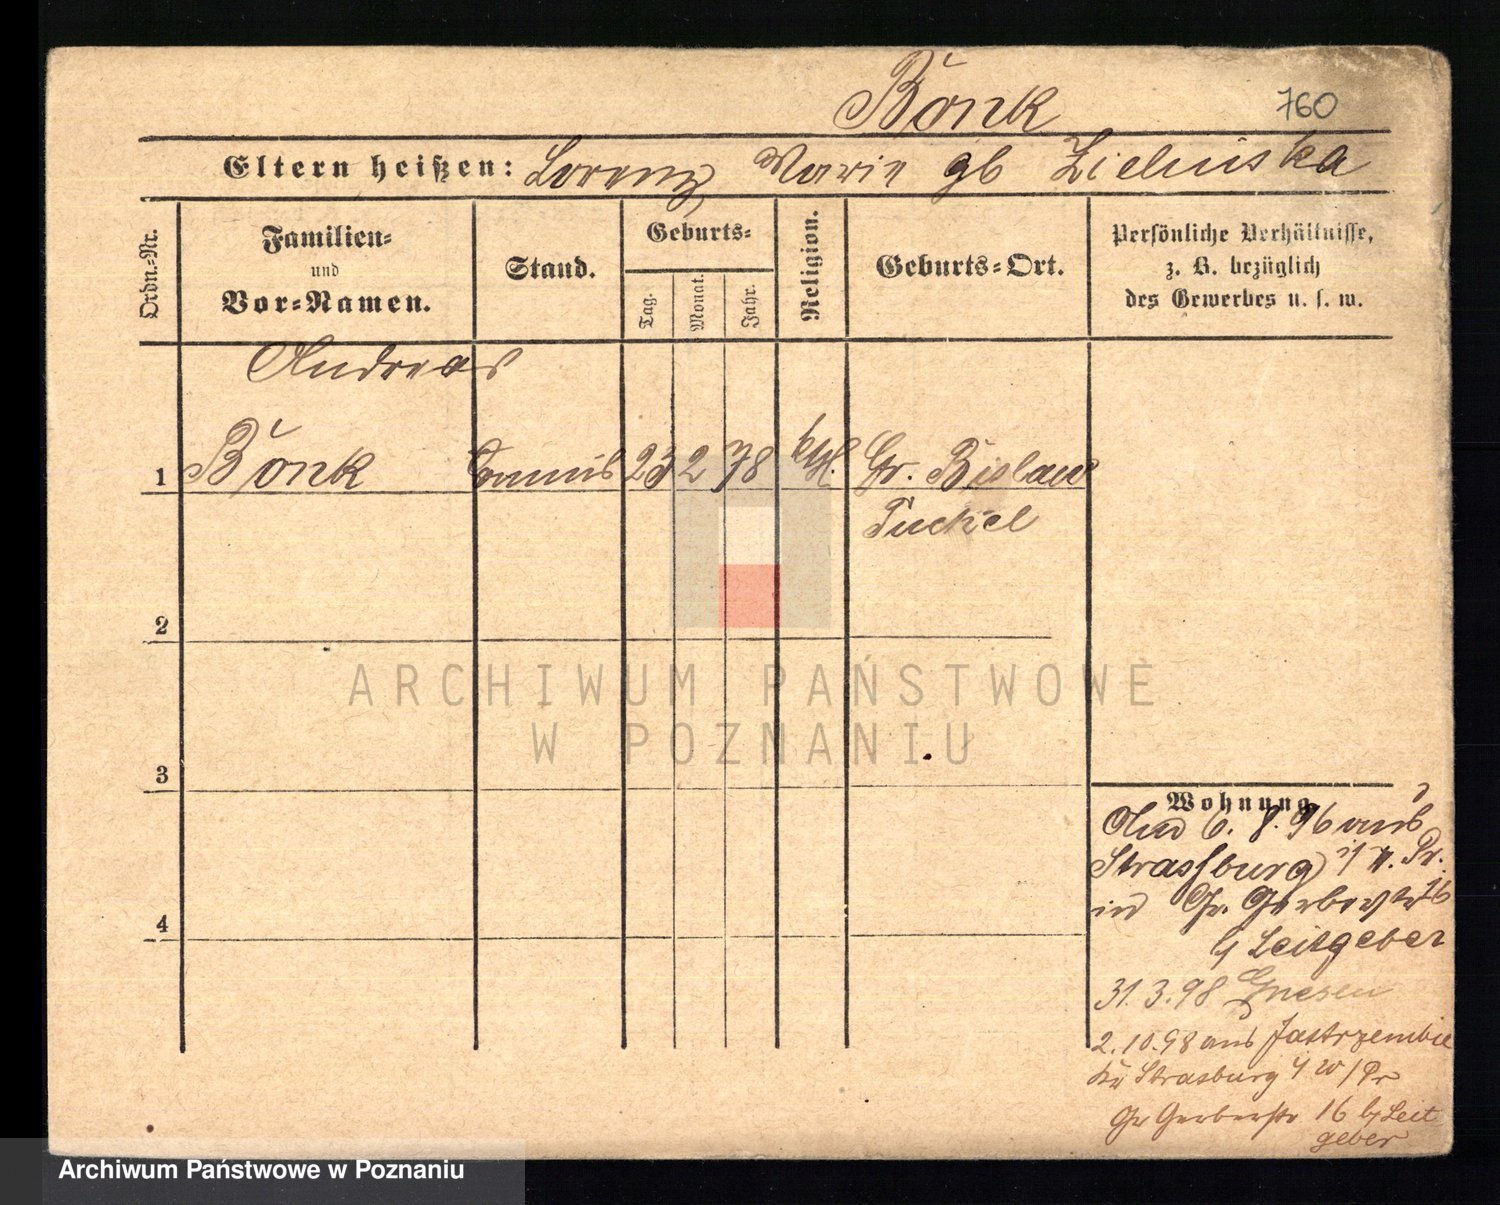 Bonk
760
Eltern heißen: Lorenz Marie gb Zielinska
Ordn.-Nr.
Familien-
und
Vor-Namen.
Stand.
Geburts-
Tag.
Monat.
Jahr.
Religion.
Geburts-Ort.
Persönliche Verhältnisse,
z. B. bezüglich
des Gewerbes u. s. w.
Andreas
1 Bonk Commis 23 2 78 kth. Gr. Bislaw
Tuchel
2
3
4
Wohnung
6. 8. 96 aus
Strassburg i/ W. Pr.
in Gr. Gerberstr 16
b/ Leitgeber
31.3.98 Gnesen
2.10.98 aus Jastrzembie
Kr Strasburg i/ W/Pr
Gr Gerberstr 16 b/ Leit
geber
ARCHIWUM PAŃSTWOWE
W POZNANIU
Archiwum Państwowe w Poznaniu